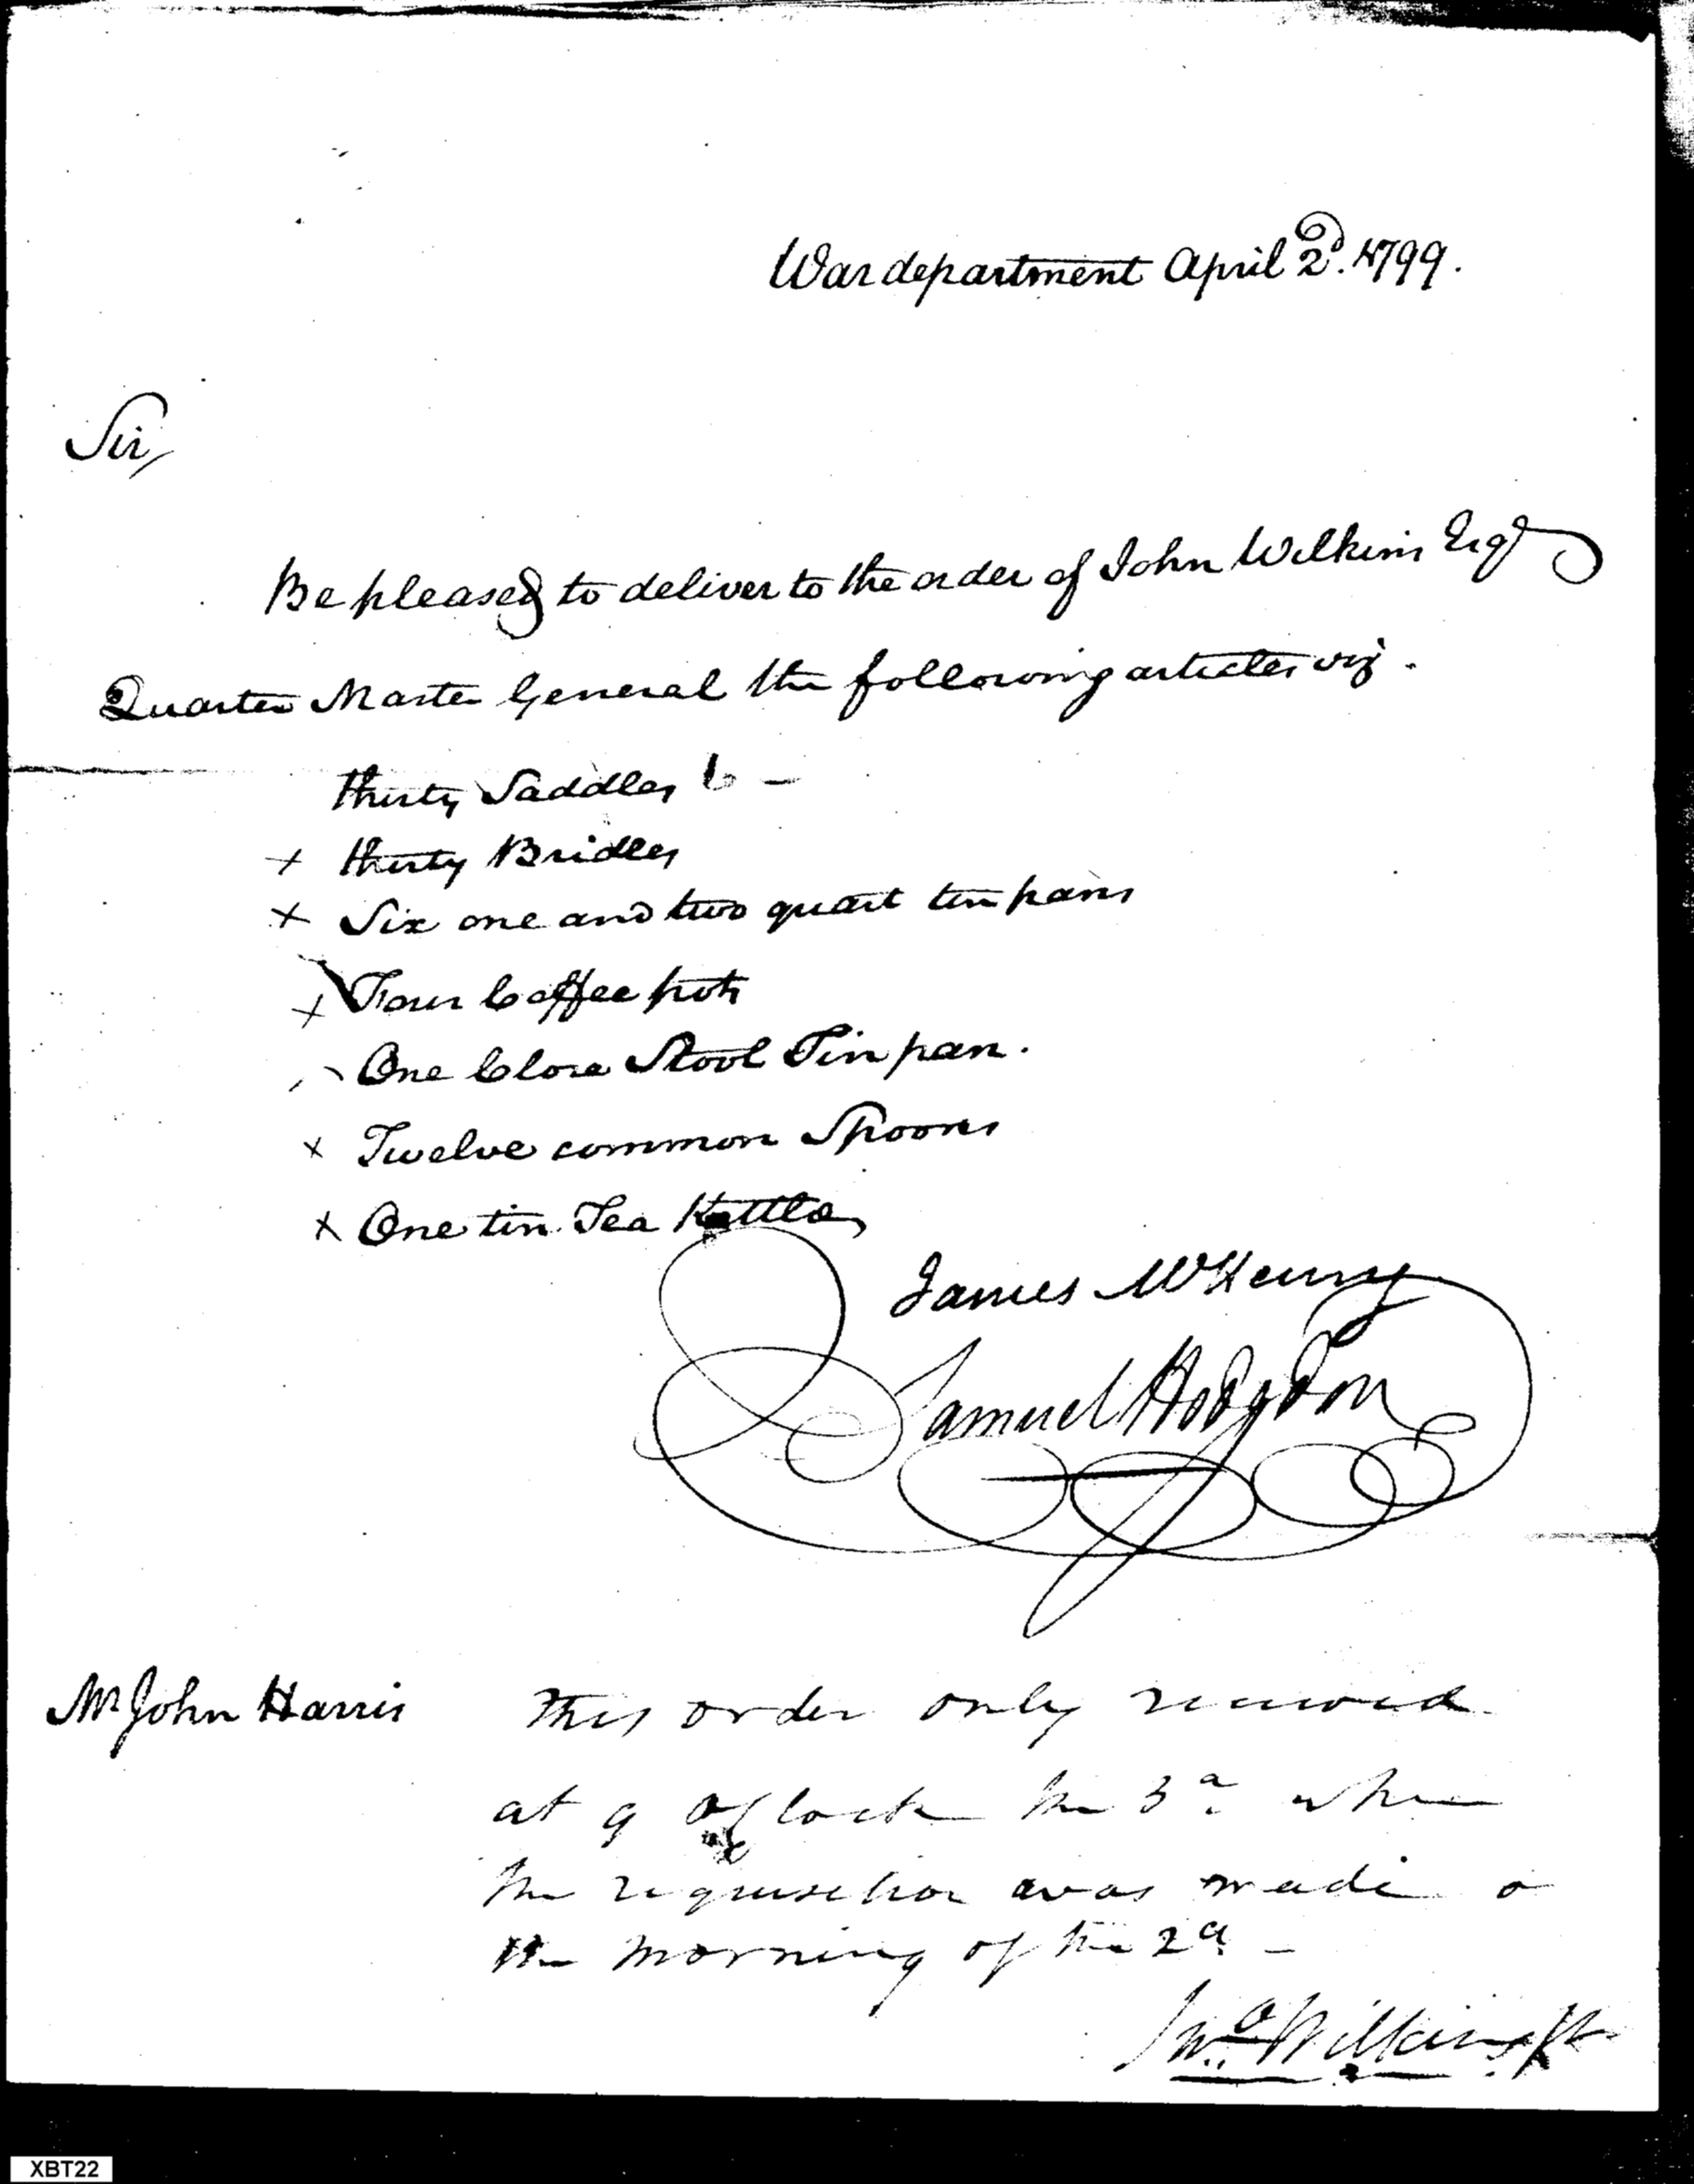 War department April 2d. 1799.
Sir,
Be pleased to deliver to the order of John Wilkins Esqr
Quarter Master General the following articles viz.
thirty Saddles 6 –
+ thirty Bridles
+ Six one and two quart tin pans
+ Four Coffee pots
One Close Stool Tin pan.
x Twelve common Spoons
x One tin Tea Kettle
James McHenry
Samuel Hodgdon
Mr John Harris
This order only received
at 9 oClock the 3d when
the requisition was made o
the morning of the 2d –
Jno Wilkins Jr
XBT22